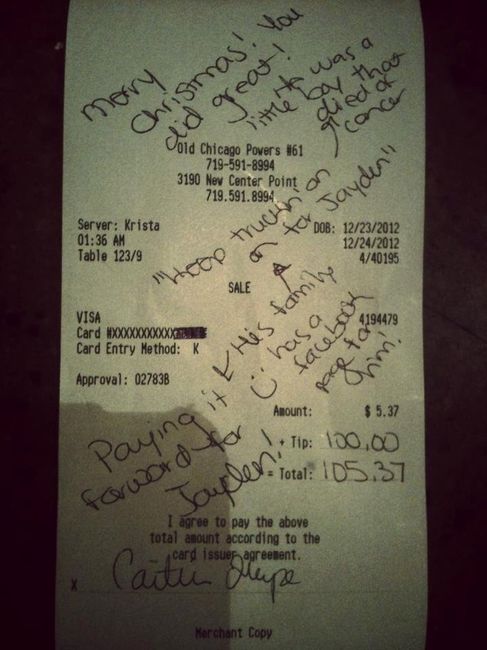 Merry
Christmas! You
did great!
He was a
little boy that
died of
cancer
Old Chicago Powers #61
719-591-8994
3190 New Center Point
719.591.8994
"Keep truckin' on
on for Jayden"
Server: Krista
DOB: 12/23/2012
01:36 AM
12/24/2012
Table 123/9
4/40195
SALE
His family
has a
facebook
page for
him!
VISA
4194479
Card #XXXXXXXXXXXX
Card Entry Method: K
Approval: 02783B
Paying it
forward for
Jayden!
Amount: $ 5.37
+ Tip: 100.00
= Total: 105.37
I agree to pay the above
total amount according to the
card issuer agreement.
X
Merchant Copy